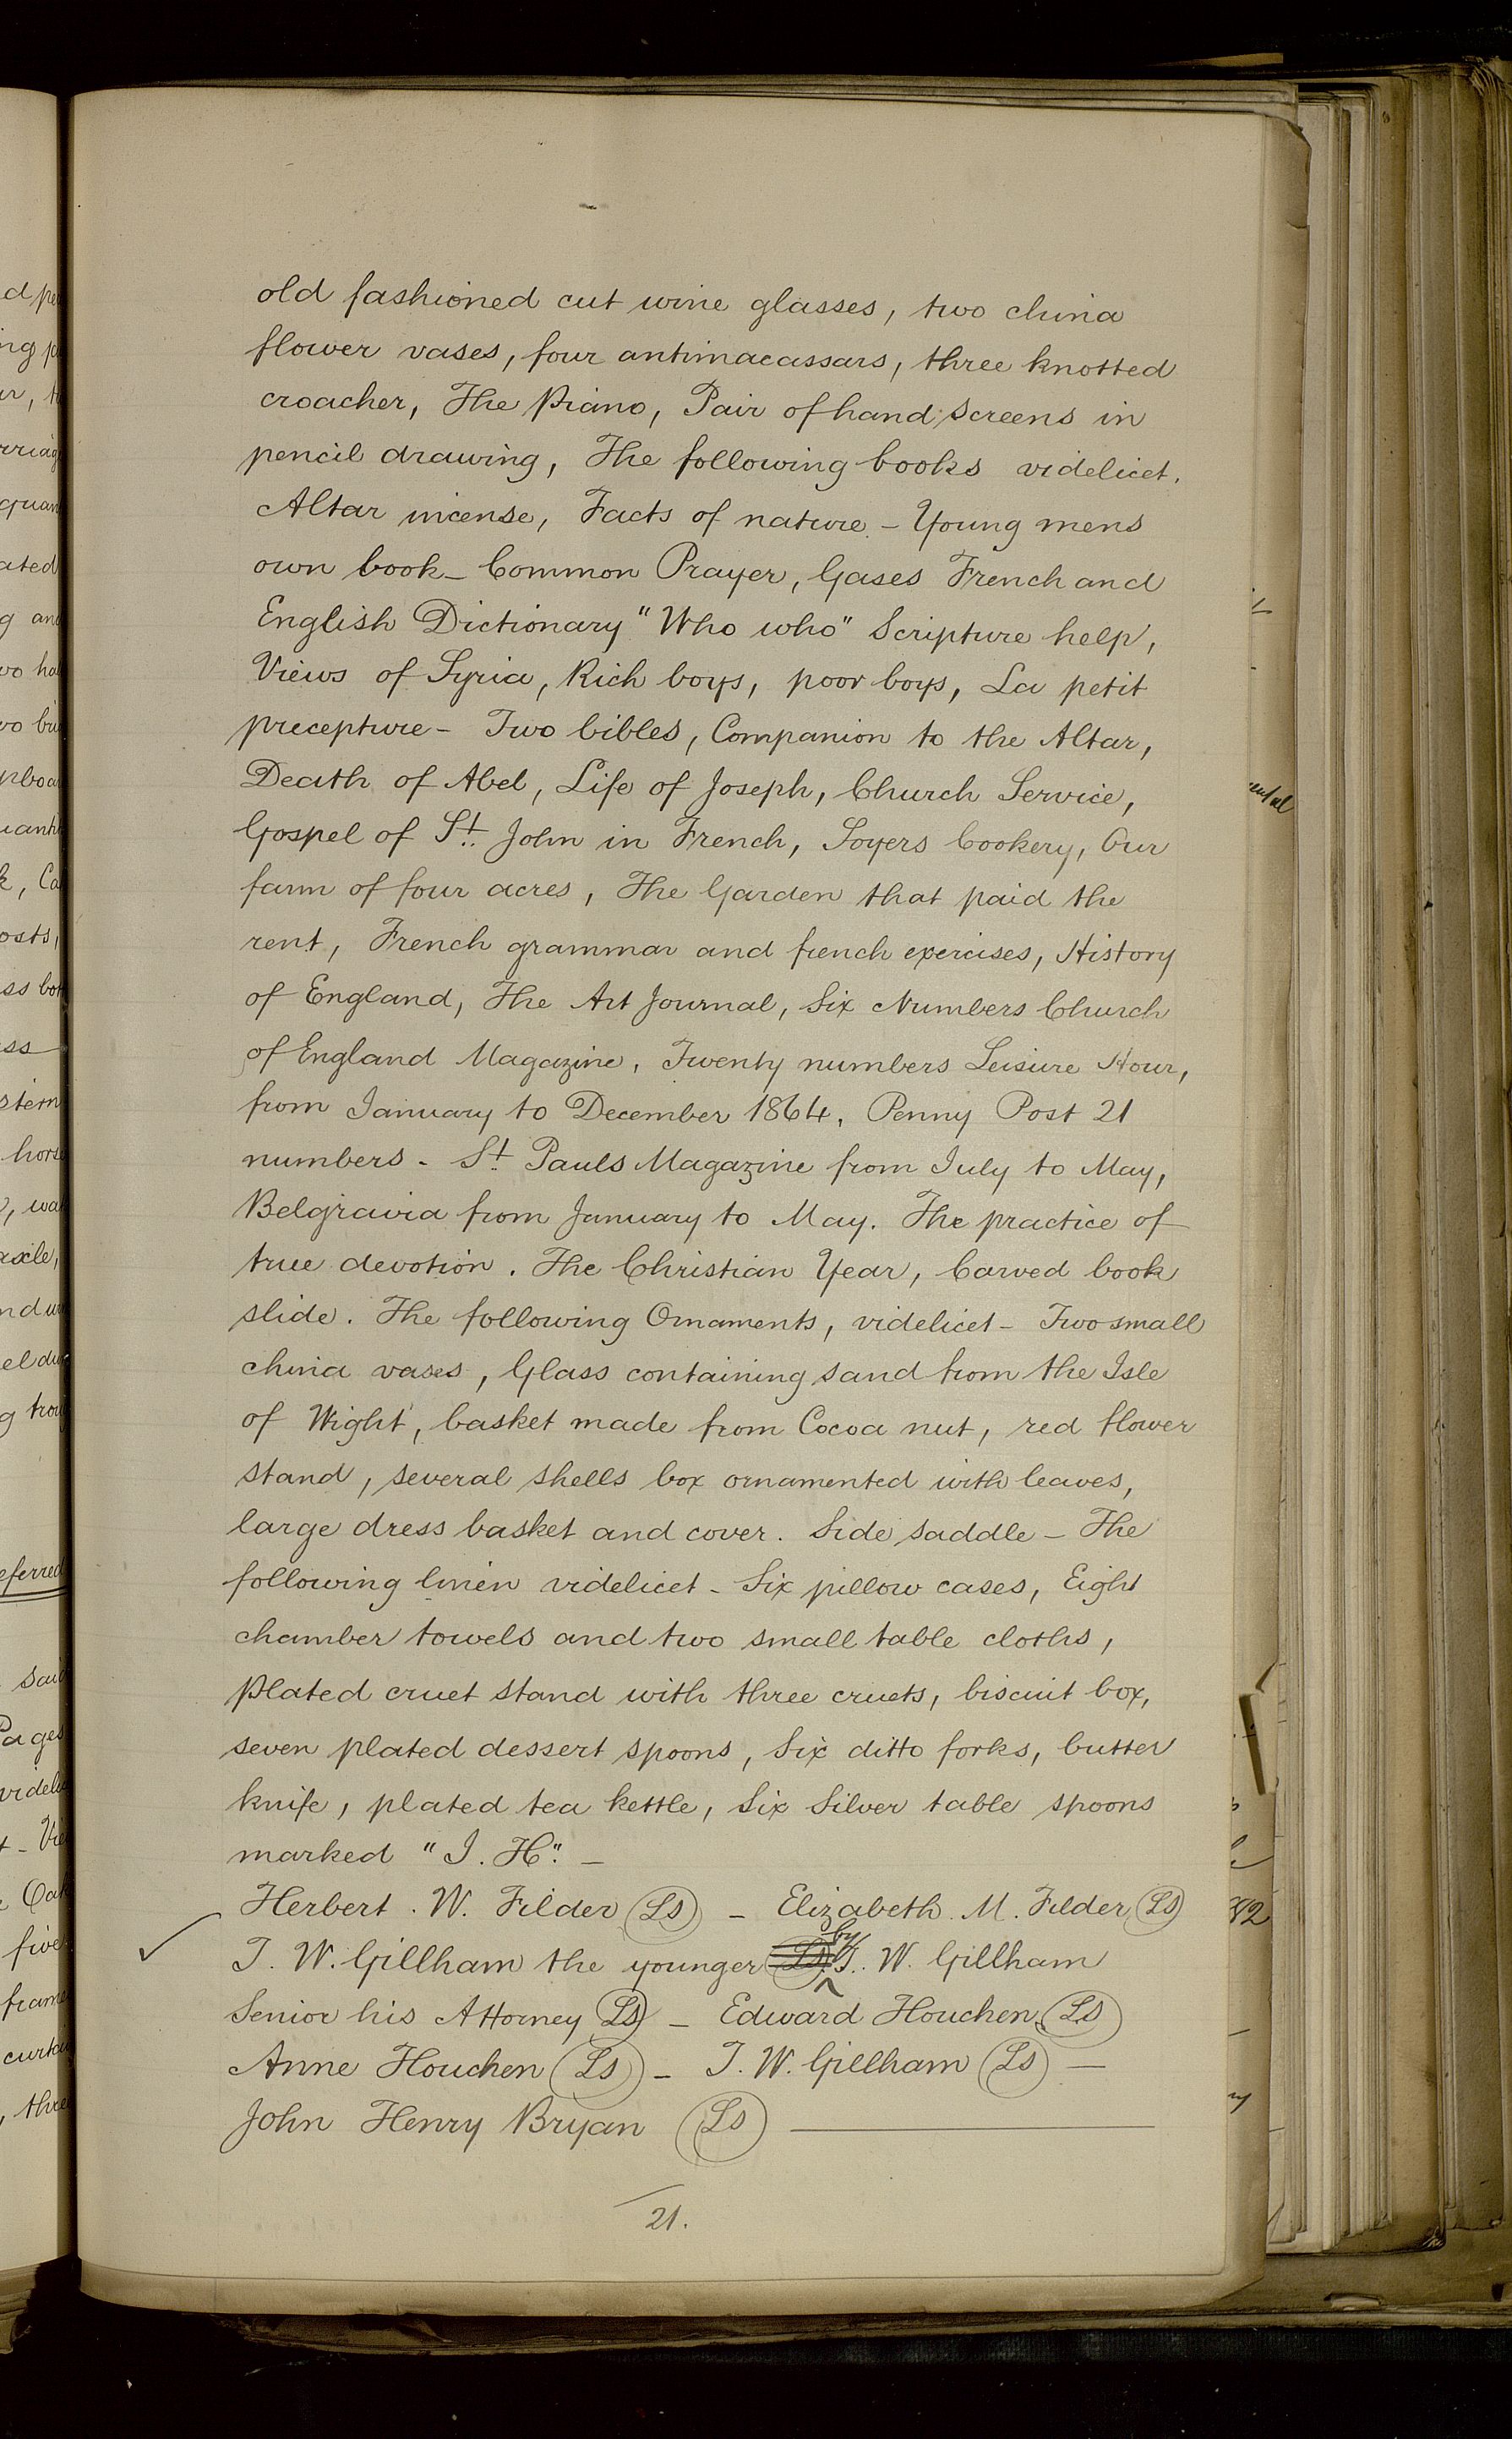 old fashioned cut wine glasses, two china
flower vases, four antimacassars, three knotted
croacher, The Piano, Pair of hand screens in
pencil drawing, The following books videlicet.
Altar incense, Facts of nature - Young mens
own book - Common Prayer, Gases French and
English Dictionary "Who who" Scripture help,
Views of Syria, Rich boys, poor boys, La petit
precepture - Two bibles, Companion to the Altar,
Death of Abel, Life of Joseph, Church Service,
Gospel of St. John in French, Soyers Cookery, Our
farm of four acres, The Garden that paid the
rent, French grammar and french exercises, History
of England, The Art Journal, Six Numbers Church
of England Magazine, Twenty numbers Leisure Hour,
from January to December 1864, Penny Post 21
numbers - St. Pauls Magazine from July to May,
Belgravia from January to May. The practice of
true devotion. The Christian Year, Carved book
slide. The following Ornaments, videlicet - Two small
china vases, Glass containing sand from the Isle
of Wight, basket made from Cocoa nut, red flower
stand, several shells box ornamented with leaves,
large dress basket and cover. Side saddle - The
following linen videlicet - Six pillow cases, Eight
chamber towels and two small table cloths,
plated cruet stand with three cruets, biscuit box,
seven plated dessert spoons, six ditto forks, butter
knife, plated tea kettle, six silver table spoons
marked "J. H". -
Herbert. W. Filder (LS) - Elizabeth. M. Filder (LS)
T. W. Gillham the younger (LS) by T. W. Gillham
Senior his Attorney (LS) - Edward Houchen (LS)
Anne Houchen (LS) - T. W. Gillham (LS) -
John Henry Bryan (LS)
21.